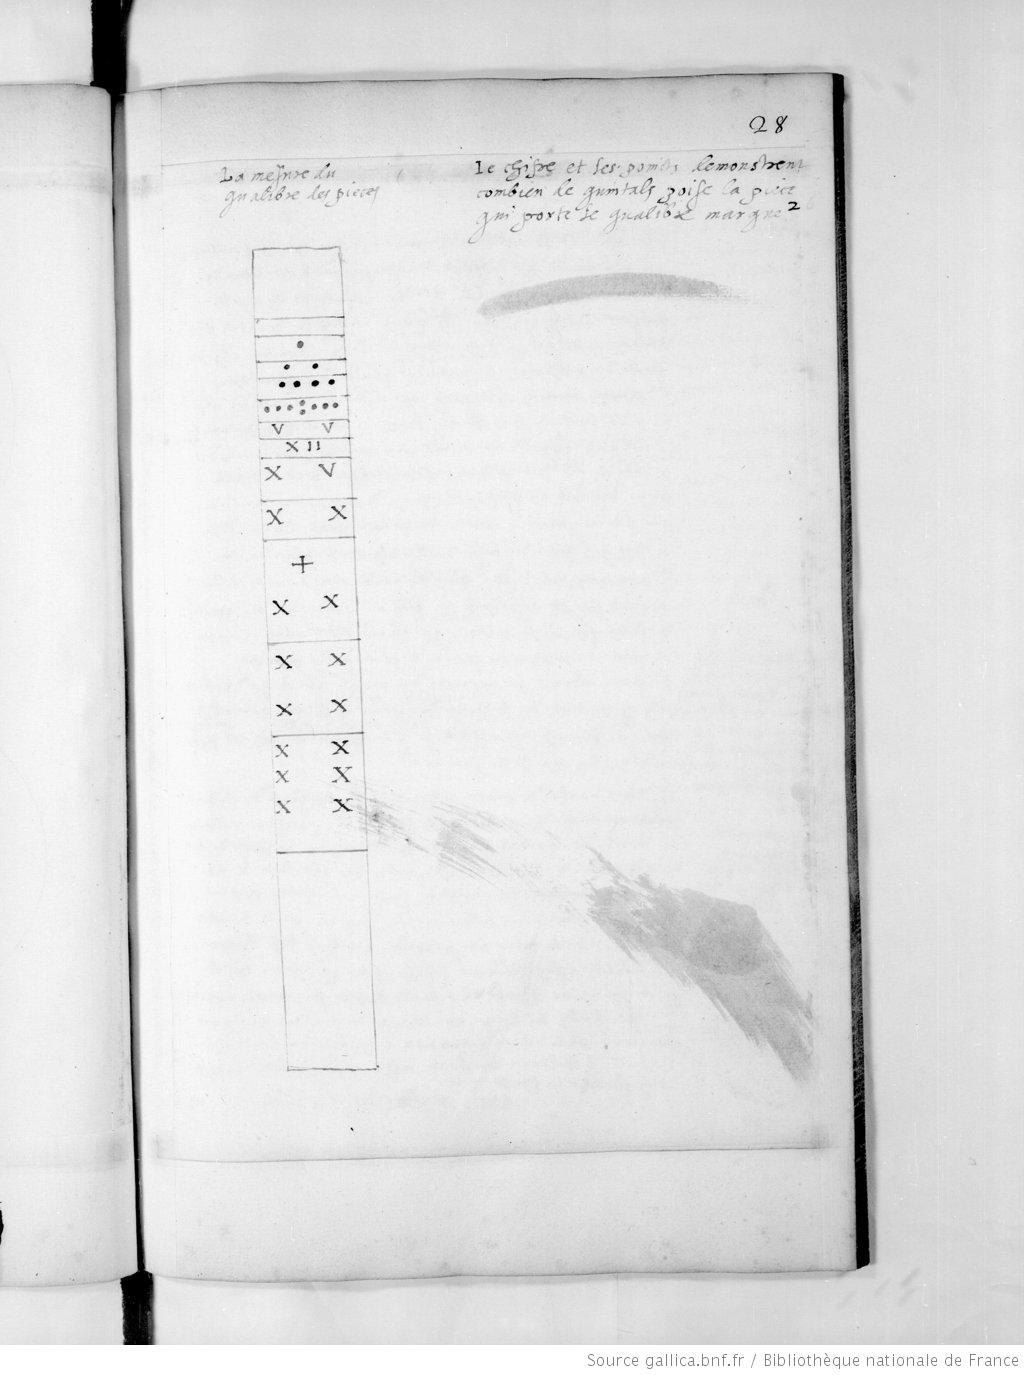 28
La mesure du
qualibre des pieces
Le chifre et les points demonstrent
combien de quintals poise la piece
qui porte le qualibre marque 2
V V
X II
X V
X X
+
X X
X X
X X
X X
X X
X X
Source gallica.bnf.fr / Bibliothèque nationale de France